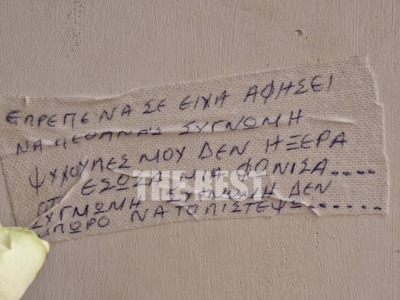 ΕΠΡΕΠΕ ΝΑ ΣΕ ΕΙΧΑ ΑΦΗΣΕΙ
ΝΑ ΠΕΘΑΝΕΙΣ ΣΥΓΝΩΜΗ
ΨΥΧΟΥΛΕΣ ΜΟΥ ΔΕΝ ΗΞΕΡΑ
ΟΤΙ ΕΣΩΣΑ ΜΙΑ ΦΟΝΙΣΑ....
ΣΥΓΝΩΜΗ ΣΥΓΝΩΜΗ ΔΕΝ
ΜΠΟΡΩ ΝΑ ΤΟ ΠΙΣΤΕΨΩ......
THE BEST